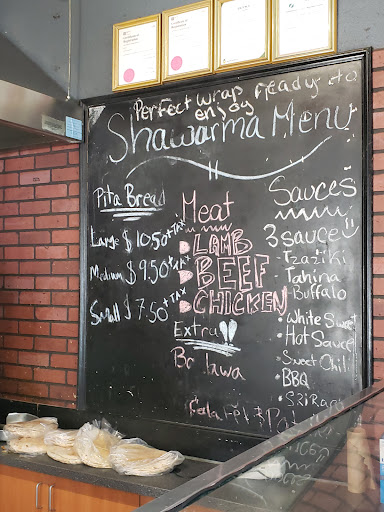 Perfect wrap ready to
enjoy
Shawarma Menu
Pita Bread
Large $10.50 + TAX
Medium $9.50 + TAX
Small $7.50 + TAX
Meat
LAMB
BEEF
CHICKEN
Extra
Sauces
3 sauce
Tzaziki
Tahina
Buffalo
• White Sweet
• Hot Sauce
• Sweet Chili
BBQ